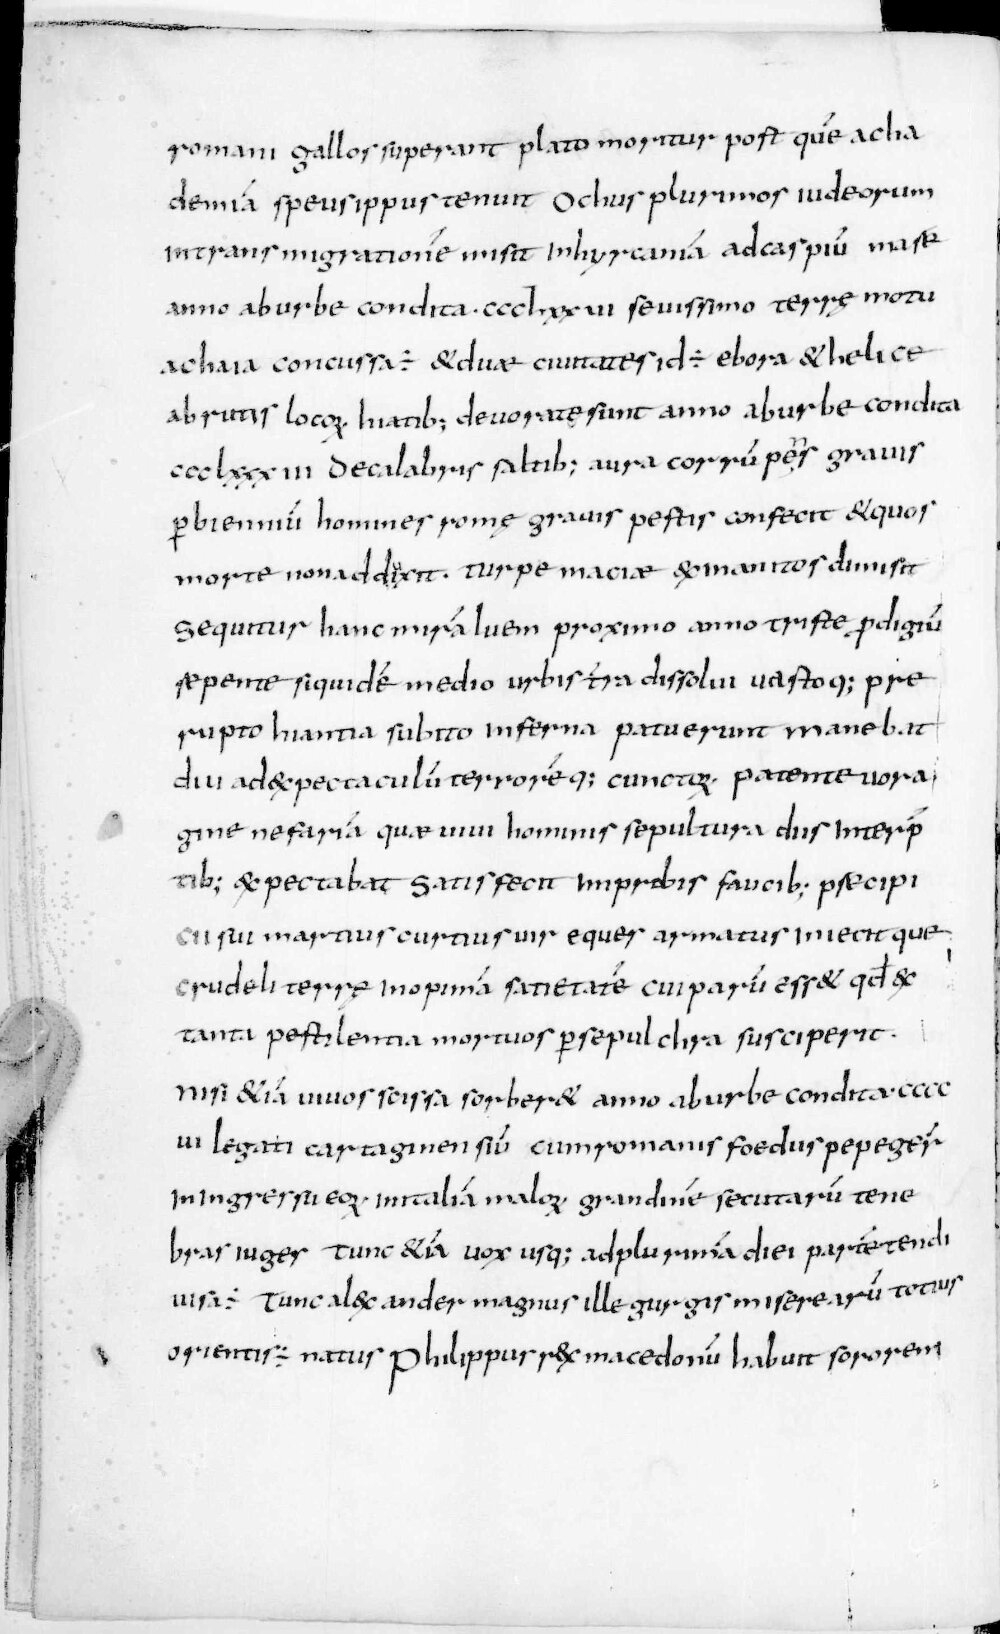 romani gallos superant plato moritur post quē acha
demiā speusippus tenuit Ochus plurimos iudeorum
intrans migrationē misit inhyrcaniā adcaspiū mare
anno aburbe condita · ccclxx vii sevissimo terrę motu
achaia concussa ÷ &duæ civitates id ÷ ebora &helice
abrutis locoꝝ hiatib; devoratę sunt anno aburbe condita
ccclxxx iii Decalabris saltib; aura corrūpens gravis
ꝑbienniū homines romę gravis pestis confecit &quos
morte non addixit · turpe maciæ exinanitos dimisit
Sequitur hanc mirā luem proximo anno triste ꝓdigiū
repente siquidē medio urbis tr̄a dissolui vastoq; pre
rupto hiantia subito inferna patuerunt Manebat
diu ad&xpectaculū terrorēq; cunctoꝝ. patente vora
gine nefariā quæ vivi hominis sepultura diis interp̄
tib; &xpectabat Satisfecit improbis faucib; præcipi
cii sui martius curtius vir eques armatus iniecit que
crudeli terrę inopinā satietatē cui parū ess& qd̄ &x
tanta pestilentia mortuos ꝑsepulchra susciperit ·
nisi &iā vivos scissa sorber& anno aburbe condita · cccc
vi legati cartaginensiū cumromanis foedus pepeger̄
iningressu eoꝝ. initaliā maloꝝ. grandinē secutarū tene
bras iuges Tunc &iā vox usq; adplurimā diei partē tendi
visa ÷ Tunc al&xander magnus ille gurgis miserearū totius
orientis ÷ natus Philippus r&x macedonū habuit sororem